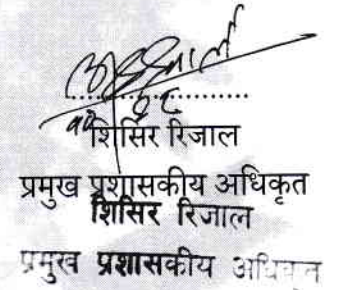 शिसिर रिजाल
प्रमुख प्रशासकीय अधिकृत
शिसिर रिजाल
प्रमुख प्रशासकीय अधिकृत